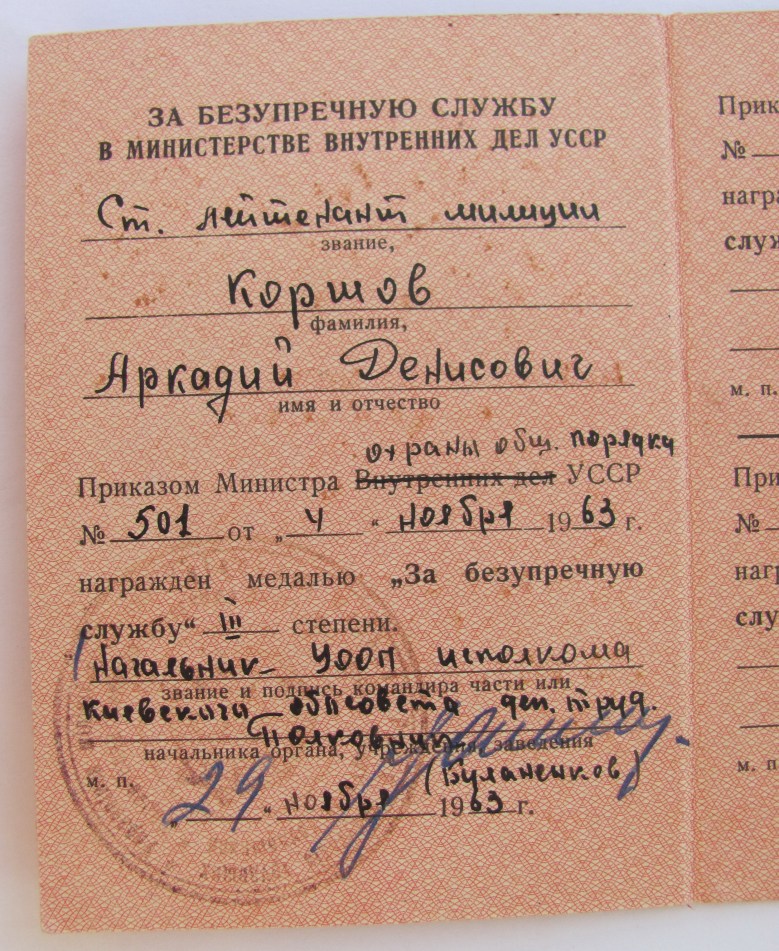 ЗА БЕЗУПРЕЧНУЮ СЛУЖБУ
В МИНИСТЕРСТВЕ ВНУТРЕННИХ ДЕЛ УССР
Ст. лейтенант милиции
звание,
Коршов
фамилия,
Аркадий Денисович
имя и отчество
охраны общ. порядка
Приказом Министра Внутренних дел УССР
№ 501 от „4“ ноября 1963 г.
награжден медалью „За безупречную
службу“ III степени.
Начальник УООП исполкома
звание и подпись командира части или
Киевского облсовета деп. труд.
Полковник
начальника органа, учреждения, заведения
(Буланенков)
м. п. „29“ ноября 1963 г.
Прик
№
награ
служ
м. п.
При
№
нагр
слу
м. п.